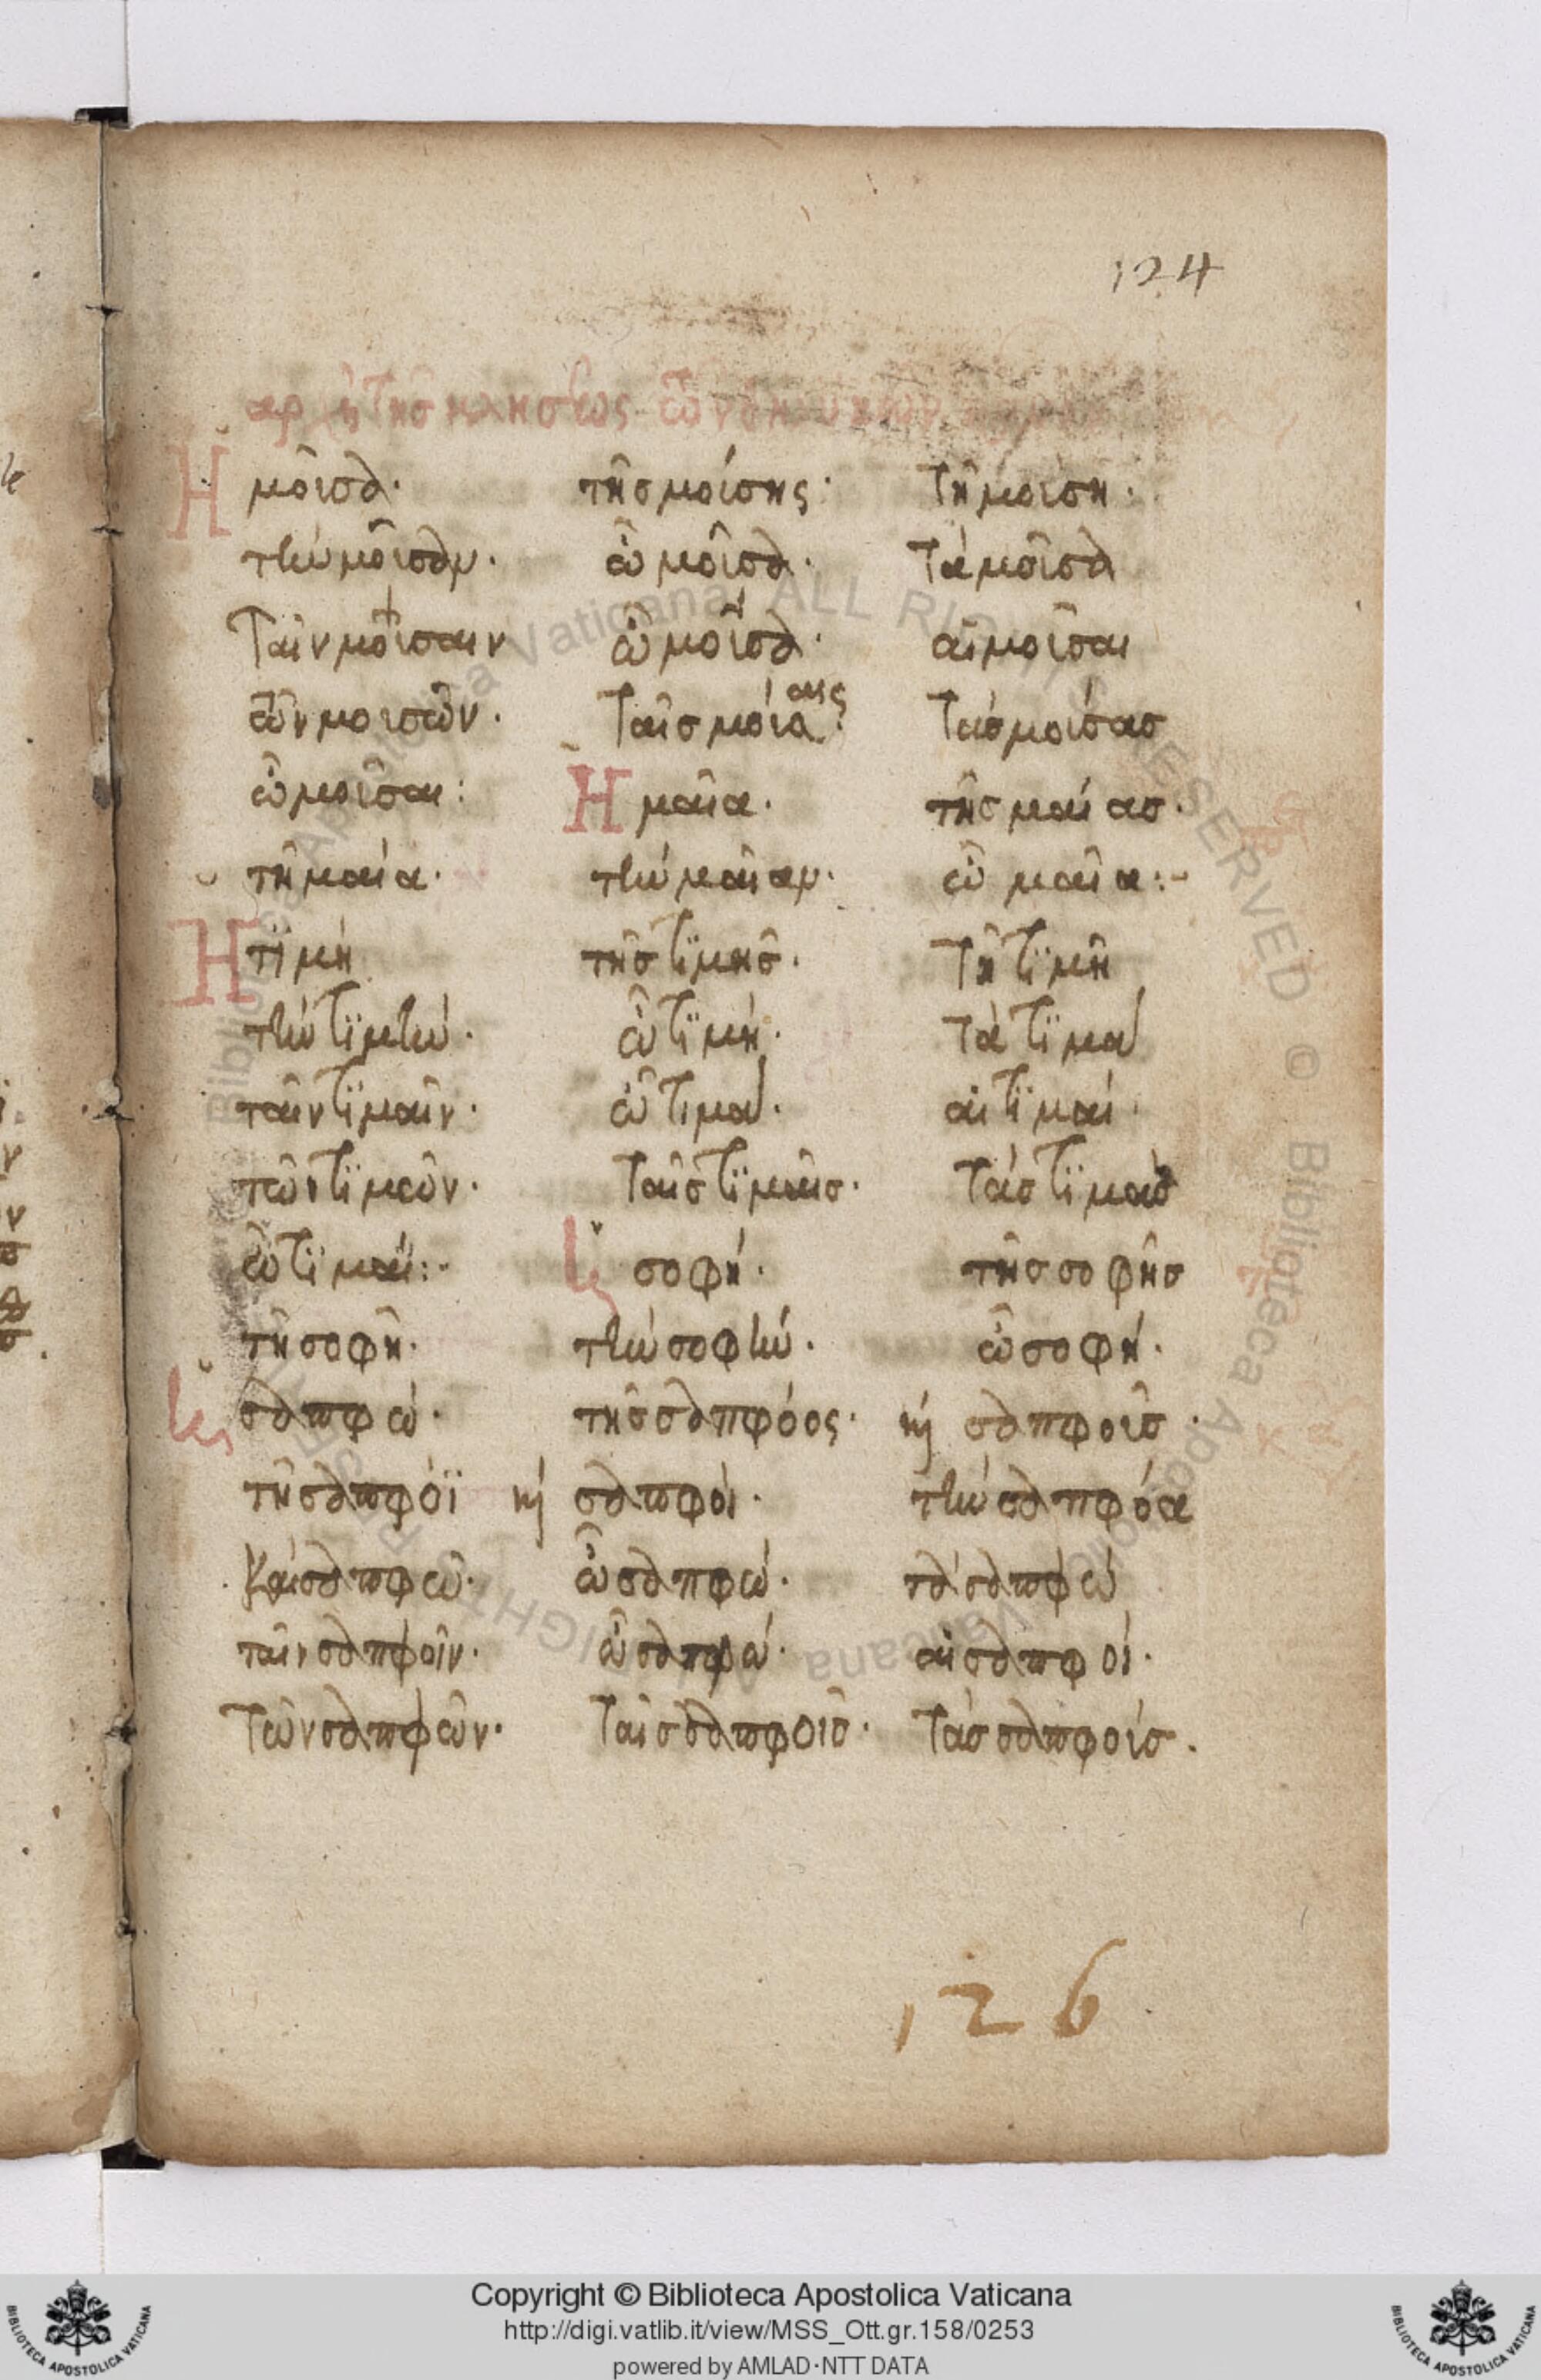 124
αρχὴ τῆς κλήσεως τῶν θηλυκῶν
Ἡ μοῖσα· τῆς μοίσης· τῆ μοίση·
τὴν μοῖσαν· ὦ μοῖσα· τὰ μοῖσα
ταῖν μοίσαιν ὦ μοῖσα· αἱ μοῖσαι
τῶν μοισῶν· ταῖς μοίσαις· τὰς μοίσας
ὦ μοῖσαι: Ἡ μαῖα· τῆς μαίας·
τῆ μαία· τὴν μαῖαν· ὦ μαῖα:-
Ἡ τϊμὴ τῆς τϊμῆς· τῆ τϊμῆ
τὴν τϊμὴν· ὦ τϊμὴ· τὰ τϊμὰ
ταῖν τϊμαῖν· ὦ τιμὰ· αἱ τϊμαί·
τῶν τϊμῶν· ταῖς τϊμαῖς· τὰς τϊμὰς
ὦ τϊμαί:· ἡ σοφή· τῆς σοφῆς
τῆ σοφῆ· τὴν σοφήν· ὦ σοφή·
ἡ σαπφώ· τῆς σαπφόος· καὶ σαπφοῖς·
τῆ σαπφόϊ καὶ σαπφοῖ· τὴν σαπφόα
καὶ σαπφῶ· ὦ σαπφώ· τὰ σαπφώ
ταῖν σαπφοῖν· ὦ σαπφώ· αἱ σαπφοί·
τῶν σαπφῶν· ταῖς σαπφοῖς· τὰς σαπφοίς·
126
Copyright © Biblioteca Apostolica Vaticana
http://digi.vatlib.it/view/MSS_Ott.gr.158/0253
powered by AMLAD·NTT DATA